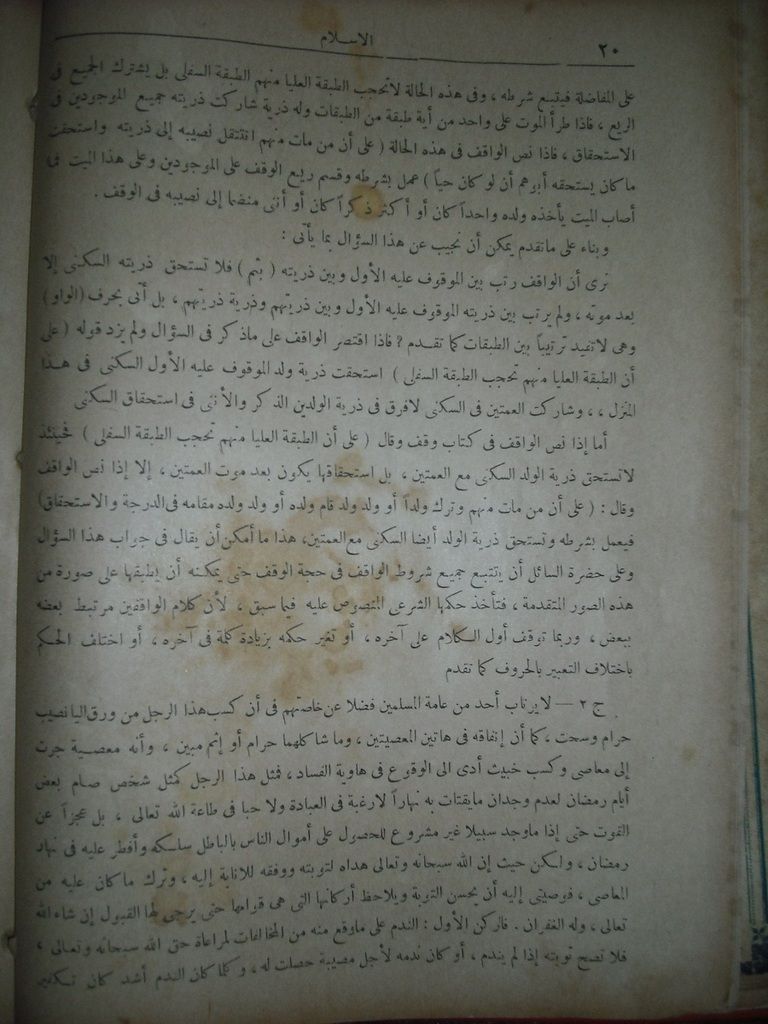 ٢٠
الاسلام
على المفاضلة فيتبع شرطه ، وفى هذه الحالة لاتحجب الطبقة العليا منهم الطبقة السفلى بل يشترك الجميع فى
الريع ، فاذا طرأ الموت على واحد من أية طبقة من الطبقات وله ذرية شاركت ذريته جميع الموجودين فى
الاستحقاق ، فاذا نص الواقف فى هذه الحالة ( على أن من مات منهم انتقل نصيبه إلى ذريته واستحقت
ما كان يستحقه أبوهم أن لو كان حياً ) عمل بشرطه وقسم ريع الوقف على الموجودين وعلى هذا الميت فما
أصاب الميت يأخذه ولده واحداً كان أو أكثر ذكراً كان أو أنثى منضما إلى نصيبه فى الوقف .
وبناء على ماتقدم يمكن أن نجيب عن هذا السؤال بما يأتى :
نرى أن الواقف رتب بين الموقوف عليه الأول وبين ذريته ( بثم ) فلا تستحق ذريته السكنى إلا
بعد موته ، ولم يرتب بين ذريته الموقوف عليه الأول وبين ذريتهم وذرية ذريتهم ، بل أتى بحرف (الواو)
وهى لاتفيد ترتيباً بين الطبقات كما تقدم ؟ فاذا اقتصر الواقف على ماذكر فى السؤال ولم يزد قوله ( على
أن الطبقة العليا منهم تحجب الطبقة السفلى ) استحقت ذرية ولد الموقوف عليه الأول السكنى فى هذا
المنزل ، ، وشاركت العمتين فى السكنى لافرق فى ذرية الولدين الذكر والأنثى فى استحقاق السكنى
أما إذا نص الواقف فى كتاب وقفه وقال ( على أن الطبقة العليا منهم تحجب الطبقة السفلى ) فحينئذ
لاتستحق ذرية الولد السكنى مع العمتين ، بل استحقاقها يكون بعد موت العمتين ، إلا إذا نص الواقف
وقال : ( على أن من مات منهم وترك ولداً أو ولد ولد قام ولده أو ولد ولده مقامه فى الدرجة والاستحقاق)
فيعمل بشرطه وتستحق ذرية الولد أيضا السكنى مع العمتين، هذا ما أمكن أن يقال فى جواب هذا السؤال
وعلى حضرة السائل أن يتتبع جميع شروط الواقف فى حجة الوقف حتى يمكنه أن يطبقها على صورة من
هذه الصور المتقدمة ، فتأخذ حكمها الشرعى المنصوص عليه فيما سبق ، لأن كلام الواقفين مرتبط بعضه
ببعض ، وربما توقف أول الكلام على آخره ، أو تغير حكمه بزيادة كلمة فى آخره ، أو اختلف الحكم
باختلاف التعبير بالحروف كما تقدم
ج ٢ — لايرتاب أحد من عامة المسلمين فضلا عن خاصتهم فى أن كسب هذا الرجل من ورق اليانصيب
حرام وسحت ، كما أن إنفاقه فى هاتين المعصيتين ، وما شاكلهما حرام أو إثم مبين ، وأنه معصية جرت
إلى معاصى وكسب خبيث أدى الى الوقوع فى هاوية الفساد ، فمثل هذا الرجل كمثل شخص صام بعض
أيام رمضان لعدم وجدان مايقتات به نهاراً لارغبة فى العبادة ولا حبا فى طاعة الله تعالى ، بل عجزاً عن
القوت حتى إذا ماوجد سبيلا غير مشروع للحصول على أموال الناس بالباطل سلكه وأفطر عليه فى نهار
رمضان ، ولكن حيث إن الله سبحانه وتعالى هداه لتوبته ووفقه للانابة إليه ، وترك ما كان عليه من
المعاصى ، فوصيتى إليه أن يحسن التوبة ويلاحظ أركانها التى هى قوامها حتى يرجى لها القبول إن شاء الله
تعالى ، وله الغفران . فالركن الأول : الندم على ماوقع منه من المخالفات لمراعاة حق الله سبحانه وتعالى ،
فلا تصح توبته إذا لم يندم ، أو كان ندمه لأجل مصيبة حصلت له ، وكلما كان الندم أشد كان تكفير